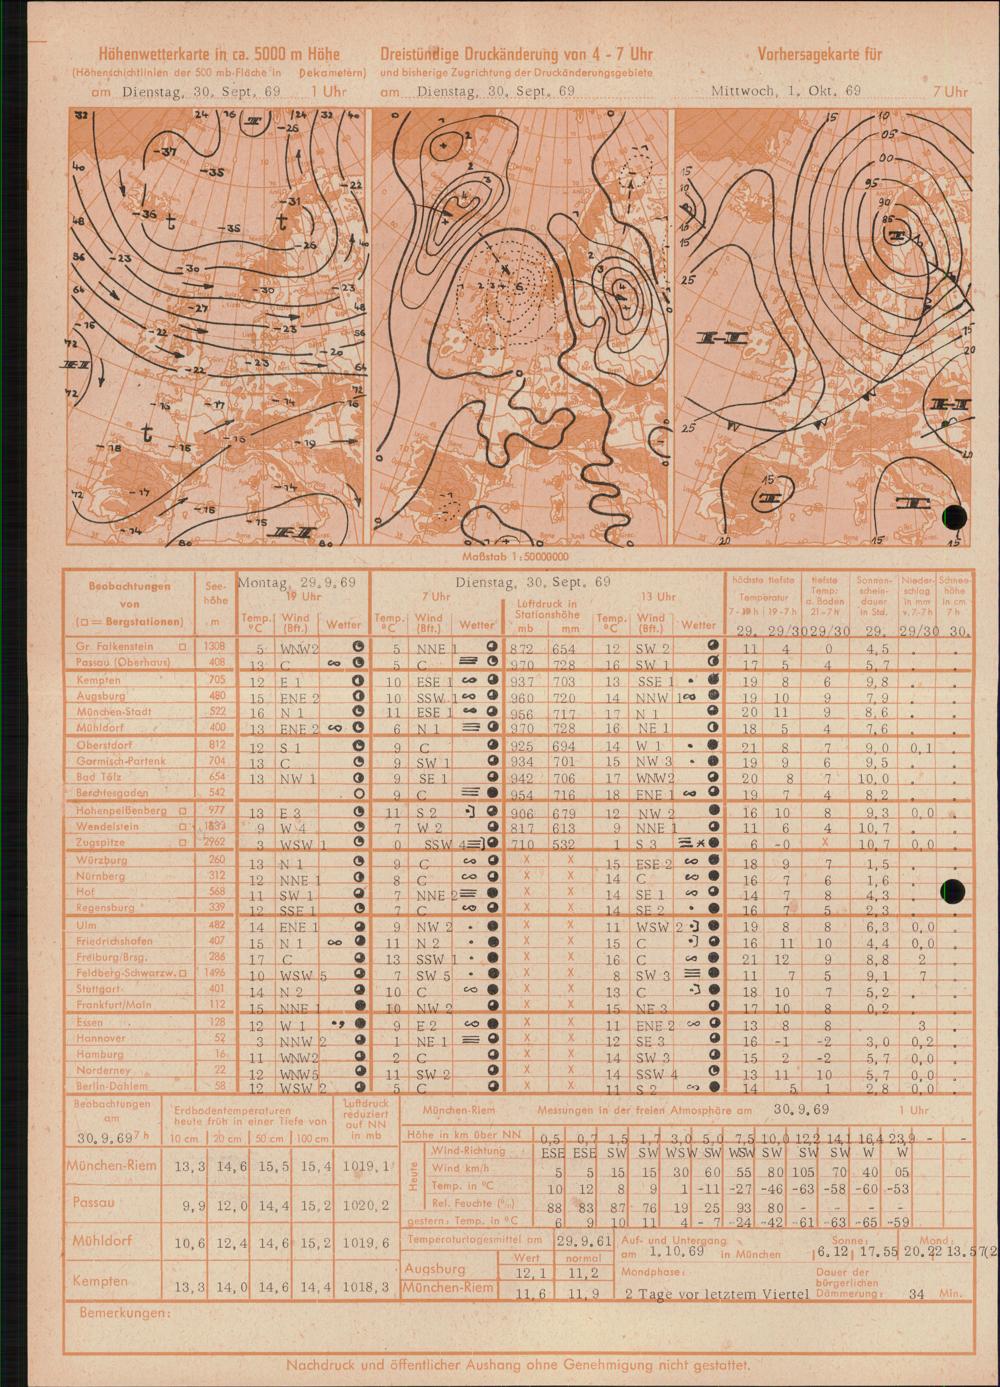 Höhenwetterkarte in ca. 5000 m Höhe
(Höhenschichtlinien der 500 mb-Fläche in Dekametern)
am Dienstag, 30. Sept. 69 1 Uhr
Dreistündige Druckänderung von 4 - 7 Uhr
und bisherige Zugrichtung der Druckänderungsgebiete
am Dienstag, 30. Sept. 69
Vorhersagekarte für
Mittwoch, 1. Okt. 69 7 Uhr
Maßstab 1:50000000
Beobachtungen von (□ = Bergstationen)
See-höhe m
Montag, 29.9.69
19 Uhr
Dienstag, 30. Sept. 69
7 Uhr
13 Uhr
Temp. °C Wind (Bft.) Wetter
Temp. °C Wind (Bft.) Wetter
Luftdruck in Stationshöhe mb mm
Temp. °C Wind (Bft.) Wetter
höchste tiefste Temperatur 7-19h 19-7h
tiefste Temp. a. Boden 21-7h
Sonnen-schein-dauer in Std.
Nieder-schlag in mm v. 7-7h
Schnee-höhe in cm 7 h
29. 29/30 29/30 29. 29/30 30.
Gr. Falkenstein □ 1308 5 WNW2 5 NNE 1 872 654 12 SW 2 11 4 0 4,5 .
Passau (Oberhaus) 408 13 C ∞ 5 C ≡ 970 728 16 SW 1 17 5 4 5,7 . .
Kempten 705 12 E 1 10 ESE 1 ∞ 937 703 13 SSE 1 • 19 8 6 9,8 . .
Augsburg 480 15 ENE 2 10 SSW 1 ∞ 960 720 14 NNW 1 ∞ 19 10 9 7,9 . .
München-Stadt 522 16 N 1 11 ESE 1 ∞ 956 717 17 N 1 20 11 9 8,6 . .
Mühldorf 400 13 ENE 2 ∞ 6 N 1 ≡ 970 728 16 NE 1 18 5 4 7,6 . .
Oberstdorf 812 12 S 1 9 C 925 694 14 W 1 • 21 8 7 9,0 0,1 .
Garmisch-Partenk 704 13 C 9 SW 1 934 701 15 NW 3 • 19 9 6 9,5 . .
Bad Tölz 654 13 NW 1 9 SE 1 942 706 17 WNW2 20 8 7 10,0 . .
Berchtesgaden 542 9 C ≡ 954 716 18 ENE 1 ∞ 19 7 4 8,2 . .
Hohenpeißenberg □ 977 13 E 3 11 S 2 •] 906 679 12 NW 2 16 10 8 9,3 0,0 .
Wendelstein □ 1833 9 W 4 7 W 2 817 613 9 NNE 1 11 6 4 10,7 .
Zugspitze □ 2962 3 WSW 1 0 SSW 4 ≡] 710 532 1 S 3 6 -0 X 10,7 0,0 .
Würzburg 260 13 N 1 9 C ∞ X X 15 ESE 2 ∞ 18 9 7 1,5 . .
Nürnberg 312 12 NNE 1 8 C ∞ X X 14 C ∞ 16 7 6 1,6 .
Hof 568 11 SW 1 7 NNE 2 ≡ X X 14 SE 1 ∞ 14 7 8 4,3 .
Regensburg 339 12 SSE 1 7 C ∞ X X 14 SE 2 • 16 7 5 2,3 . .
Ulm 482 14 ENE 1 9 NW 2 • X X 11 WSW 2 •] 19 8 8 6,3 0,0 .
Friedrichshafen 407 15 N 1 ∞ 11 N 2 • X X 15 C •] 16 11 10 4,4 0,0 .
Freiburg/Brsg. 286 17 C 13 SSW 1 • X X 16 C ∞ 21 12 9 8,8 2 .
Feldberg-Schwarzw. □ 1496 10 WSW 5 7 SW 5 • X X 8 SW 3 ≡ 11 7 5 9,1 7 .
Stuttgart 401 14 N 2 10 C ∞ X X 13 C •] 18 10 7 5,2 . .
Frankfurt/Main 112 15 NNE 1 10 NW 2 X X 15 NE 3 17 10 8 0,2 . .
Essen 128 12 W 1 •, 9 E 2 ∞ X X 11 ENE 2 ∞ 13 8 8 3 .
Hannover 52 3 NNW 2 1 NE 1 ≡ X X 12 SE 3 16 -1 -2 3,0 0,2 .
Hamburg 16 11 WNW2 2 C X X 14 SW 3 15 2 -2 5,7 0,0 .
Norderney 22 12 WNW5 11 SW 2 X X 14 SSW 4 13 11 10 5,7 0,0 .
Berlin-Dahlem 58 12 WSW 2 5 C X X 11 S 2 ∞ 14 5 1 2,8 0,0 .
Beobachtungen am 30.9.69 7h
Erdbodentemperaturen heute früh in einer Tiefe von
10 cm 20 cm 50 cm 100 cm
Luftdruck reduziert auf NN in mb
München-Riem 13,3 14,6 15,5 15,4 1019,1
Passau 9,9 12,0 14,4 15,2 1020,2
Mühldorf 10,6 12,4 14,6 15,2 1019,6
Kempten 13,3 14,0 14,6 14,4 1018,3
München-Riem Messungen in der freien Atmosphäre am 30.9.69 1 Uhr
Höhe in km über NN 0,5 0,7 1,5 1,7 3,0 5,0 7,5 10,0 12,2 14,1 16,4 23,9 - -
Heute
Wind-Richtung ESE ESE SW SW WSW SW WSW SW SW SW W W
Wind km/h 5 5 15 15 30 60 55 80 105 70 40 05
Temp. in °C 10 12 8 9 1 -11 -27 -46 -63 -58 -60 -53
Rel. Feuchte (%) 88 83 87 76 19 25 93 80 - - - -
gestern: Temp. in °C 6 9 10 11 4 - 7 -24 -42 -61 -63 -65 -59
Temperaturtagesmittel am 29.9.61
Wert normal
Augsburg 12,1 11,2
München-Riem 11,6 11,9
Auf- und Untergang am 1.10.69 in München
Sonne: 6.12 17.55
Mond: 20.22 13.57(2
Mondphase:
2 Tage vor letztem Viertel
Dauer der bürgerlichen Dämmerung: 34 Min.
Bemerkungen:
Nachdruck und öffentlicher Aushang ohne Genehmigung nicht gestattet.